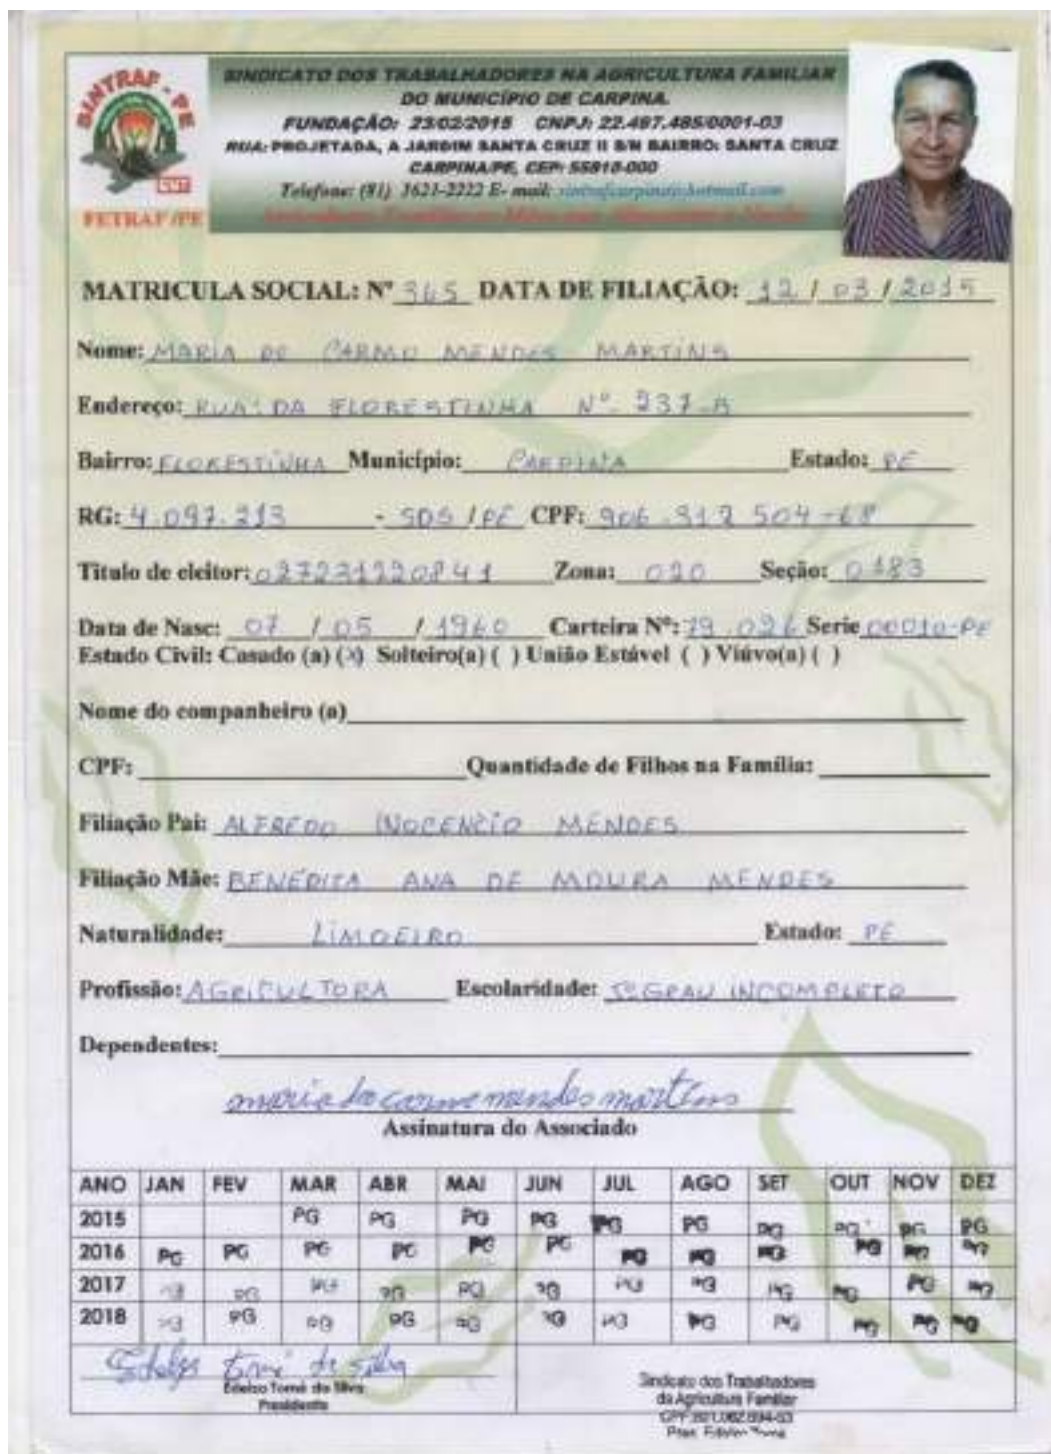 SINTRAF - PE
CUT
FETRAF/PE
SINDICATO DOS TRABALHADORES NA AGRICULTURA FAMILIAR
DO MUNICÍPIO DE CARPINA.
FUNDAÇÃO: 23/02/2015 CNPJ: 22.497.485/0001-03
RUA: PROJETADA, A JARDIM SANTA CRUZ II S/N BAIRRO: SANTA CRUZ
CARPINA/PE, CEP: 55810-000
Telefone: (81) 3621-2222 E- mail: sintrafcarpina@hotmail.com
MATRICULA SOCIAL: Nº 365 DATA DE FILIAÇÃO: 12 / 03 / 2015
Nome: MARIA DO CARMO MENDES MARTINS
Endereço: RUA: DA FLORESTINHA Nº 237-A
Bairro: FLORESTINHA Município: CARPINA Estado: PE
RG: 4.097.213 - SDS / PE CPF: 906.312 504-68
Titulo de eleitor: 027231220841 Zona: 020 Seção: 0183
Data de Nasc: 07 / 05 / 1960 Carteira Nº: 79.026 Serie 00010-PE
Estado Civil: Casado (a) (x) Solteiro(a) ( ) União Estável ( ) Viúvo(a) ( )
Nome do companheiro (a)
CPF: Quantidade de Filhos na Família:
Filiação Pai: ALFREDO INOCENCIO MENDES
Filiação Mãe: BENEDITA ANA DE MOURA MENDES
Naturalidade: LIMOEIRO Estado: PE
Profissão: AGRICULTORA Escolaridade: GRAU INCOMPLETO
Dependentes:
maria do carmo mendes martins
Assinatura do Associado
ANO JAN FEV MAR ABR MAI JUN JUL AGO SET OUT NOV DEZ
2015 PG PG PG PG PG PG PG PG PG PG
2016 PG PG PG PG PG PG PG PG PG PG PG PG
2017 PG PG PG PG PG PG PG PG PG PG PG PG
2018 PG PG PG PG PG PG PG PG PG PG PG PG
Edelso Tomé da Silva
Edelso Tomé da Silva
Presidente
Sindicato dos Trabalhadores
da Agricultura Familiar